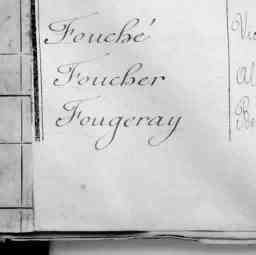 Fouché
Foucher
Fougeray